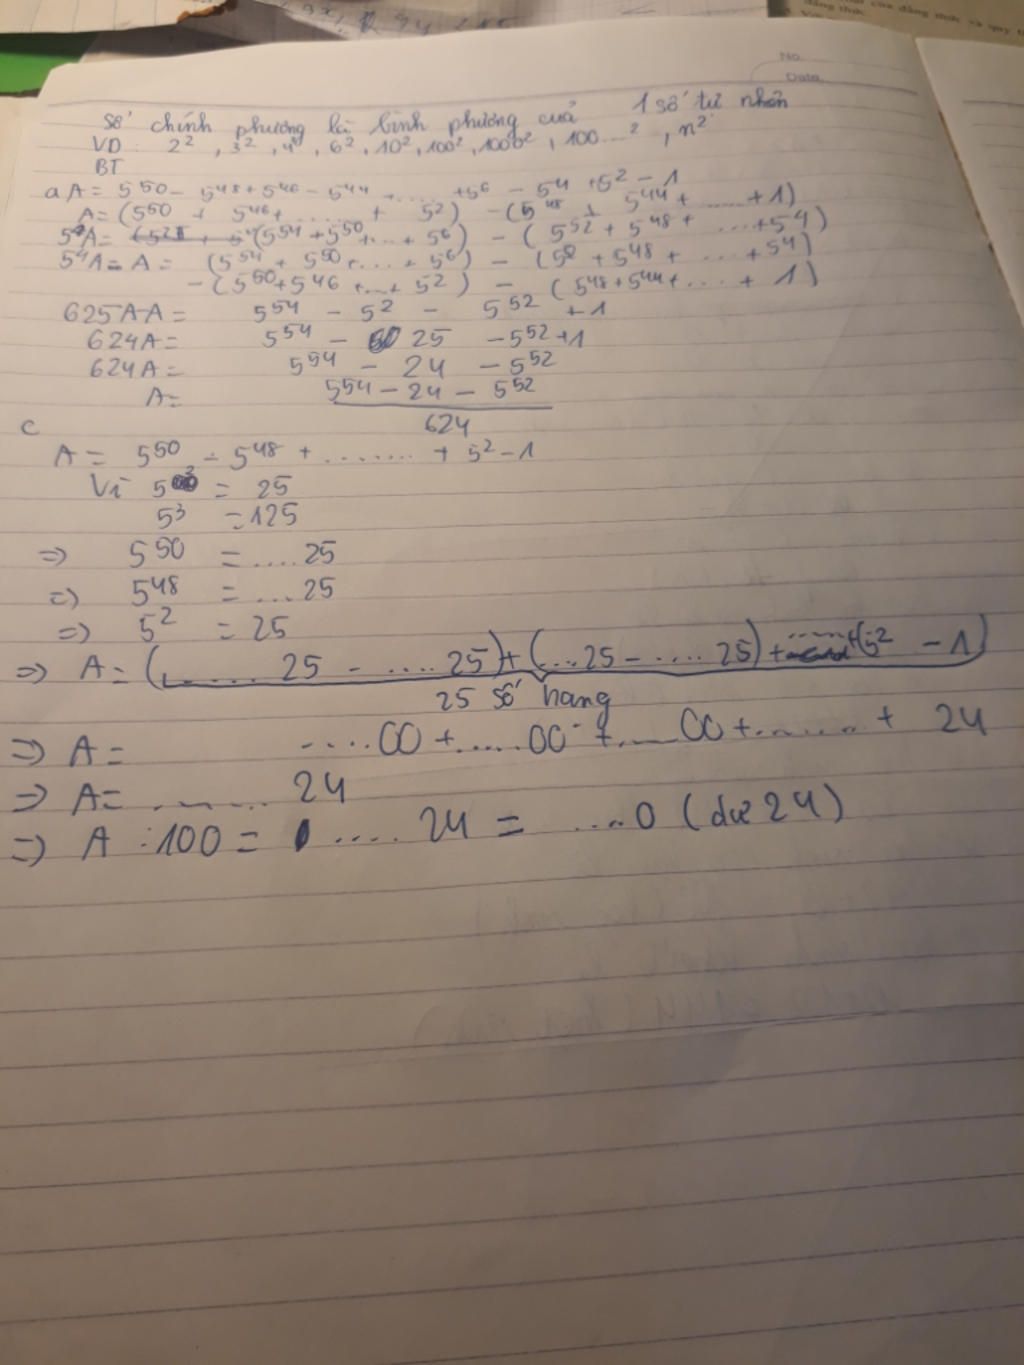 No.
Date.
Số chính phương là bình phương của 1 số tự nhiên
VD : 2², 3², 4², 6², 10², 100², 1000², 100...², n²
BT
a A = 5⁵⁰ - 5⁴⁸ + 5⁴⁶ - 5⁴⁴ + ...... + 5⁶ - 5⁴ + 5² - 1
A = (5⁵⁰ + 5⁴⁶ + ...... + 5²) - (5⁴⁸ + 5⁴⁴ + ...... + 1)
5⁴A = (5⁵⁴ + 5⁵⁰ + ... + 5⁶) - (5⁵² + 5⁴⁸ + ... + 5⁴)
5⁴A - A = (5⁵⁴ + 5⁵⁰ + ... + 5⁶) - (5⁵² + 5⁴⁸ + ... + 5⁴)
- (5⁵⁰ + 5⁴⁶ + ... + 5²) - (5⁴⁸ + 5⁴⁴ + ... + 1)
625A - A = 5⁵⁴ - 5² - 5⁵² + 1
624A = 5⁵⁴ - 25 - 5⁵² + 1
624A = 5⁵⁴ - 24 - 5⁵²
A = 5⁵⁴ - 24 - 5⁵²
624
c
A = 5⁵⁰ - 5⁴⁸ + ........ + 5² - 1
Vì 5² = 25
5³ = 125
=> 5⁵⁰ = ....25
=> 5⁴⁸ = ...25
=> 5² = 25
=> A = (......25 - ....25) + (...25 - ....25) + ...... + (5² - 1)
25 số hang
=> A = ....00 + .....00 + .....00 + ....... + 24
=> A = ....... 24
=> A : 100 = ....24 = ....0 (dư 24)